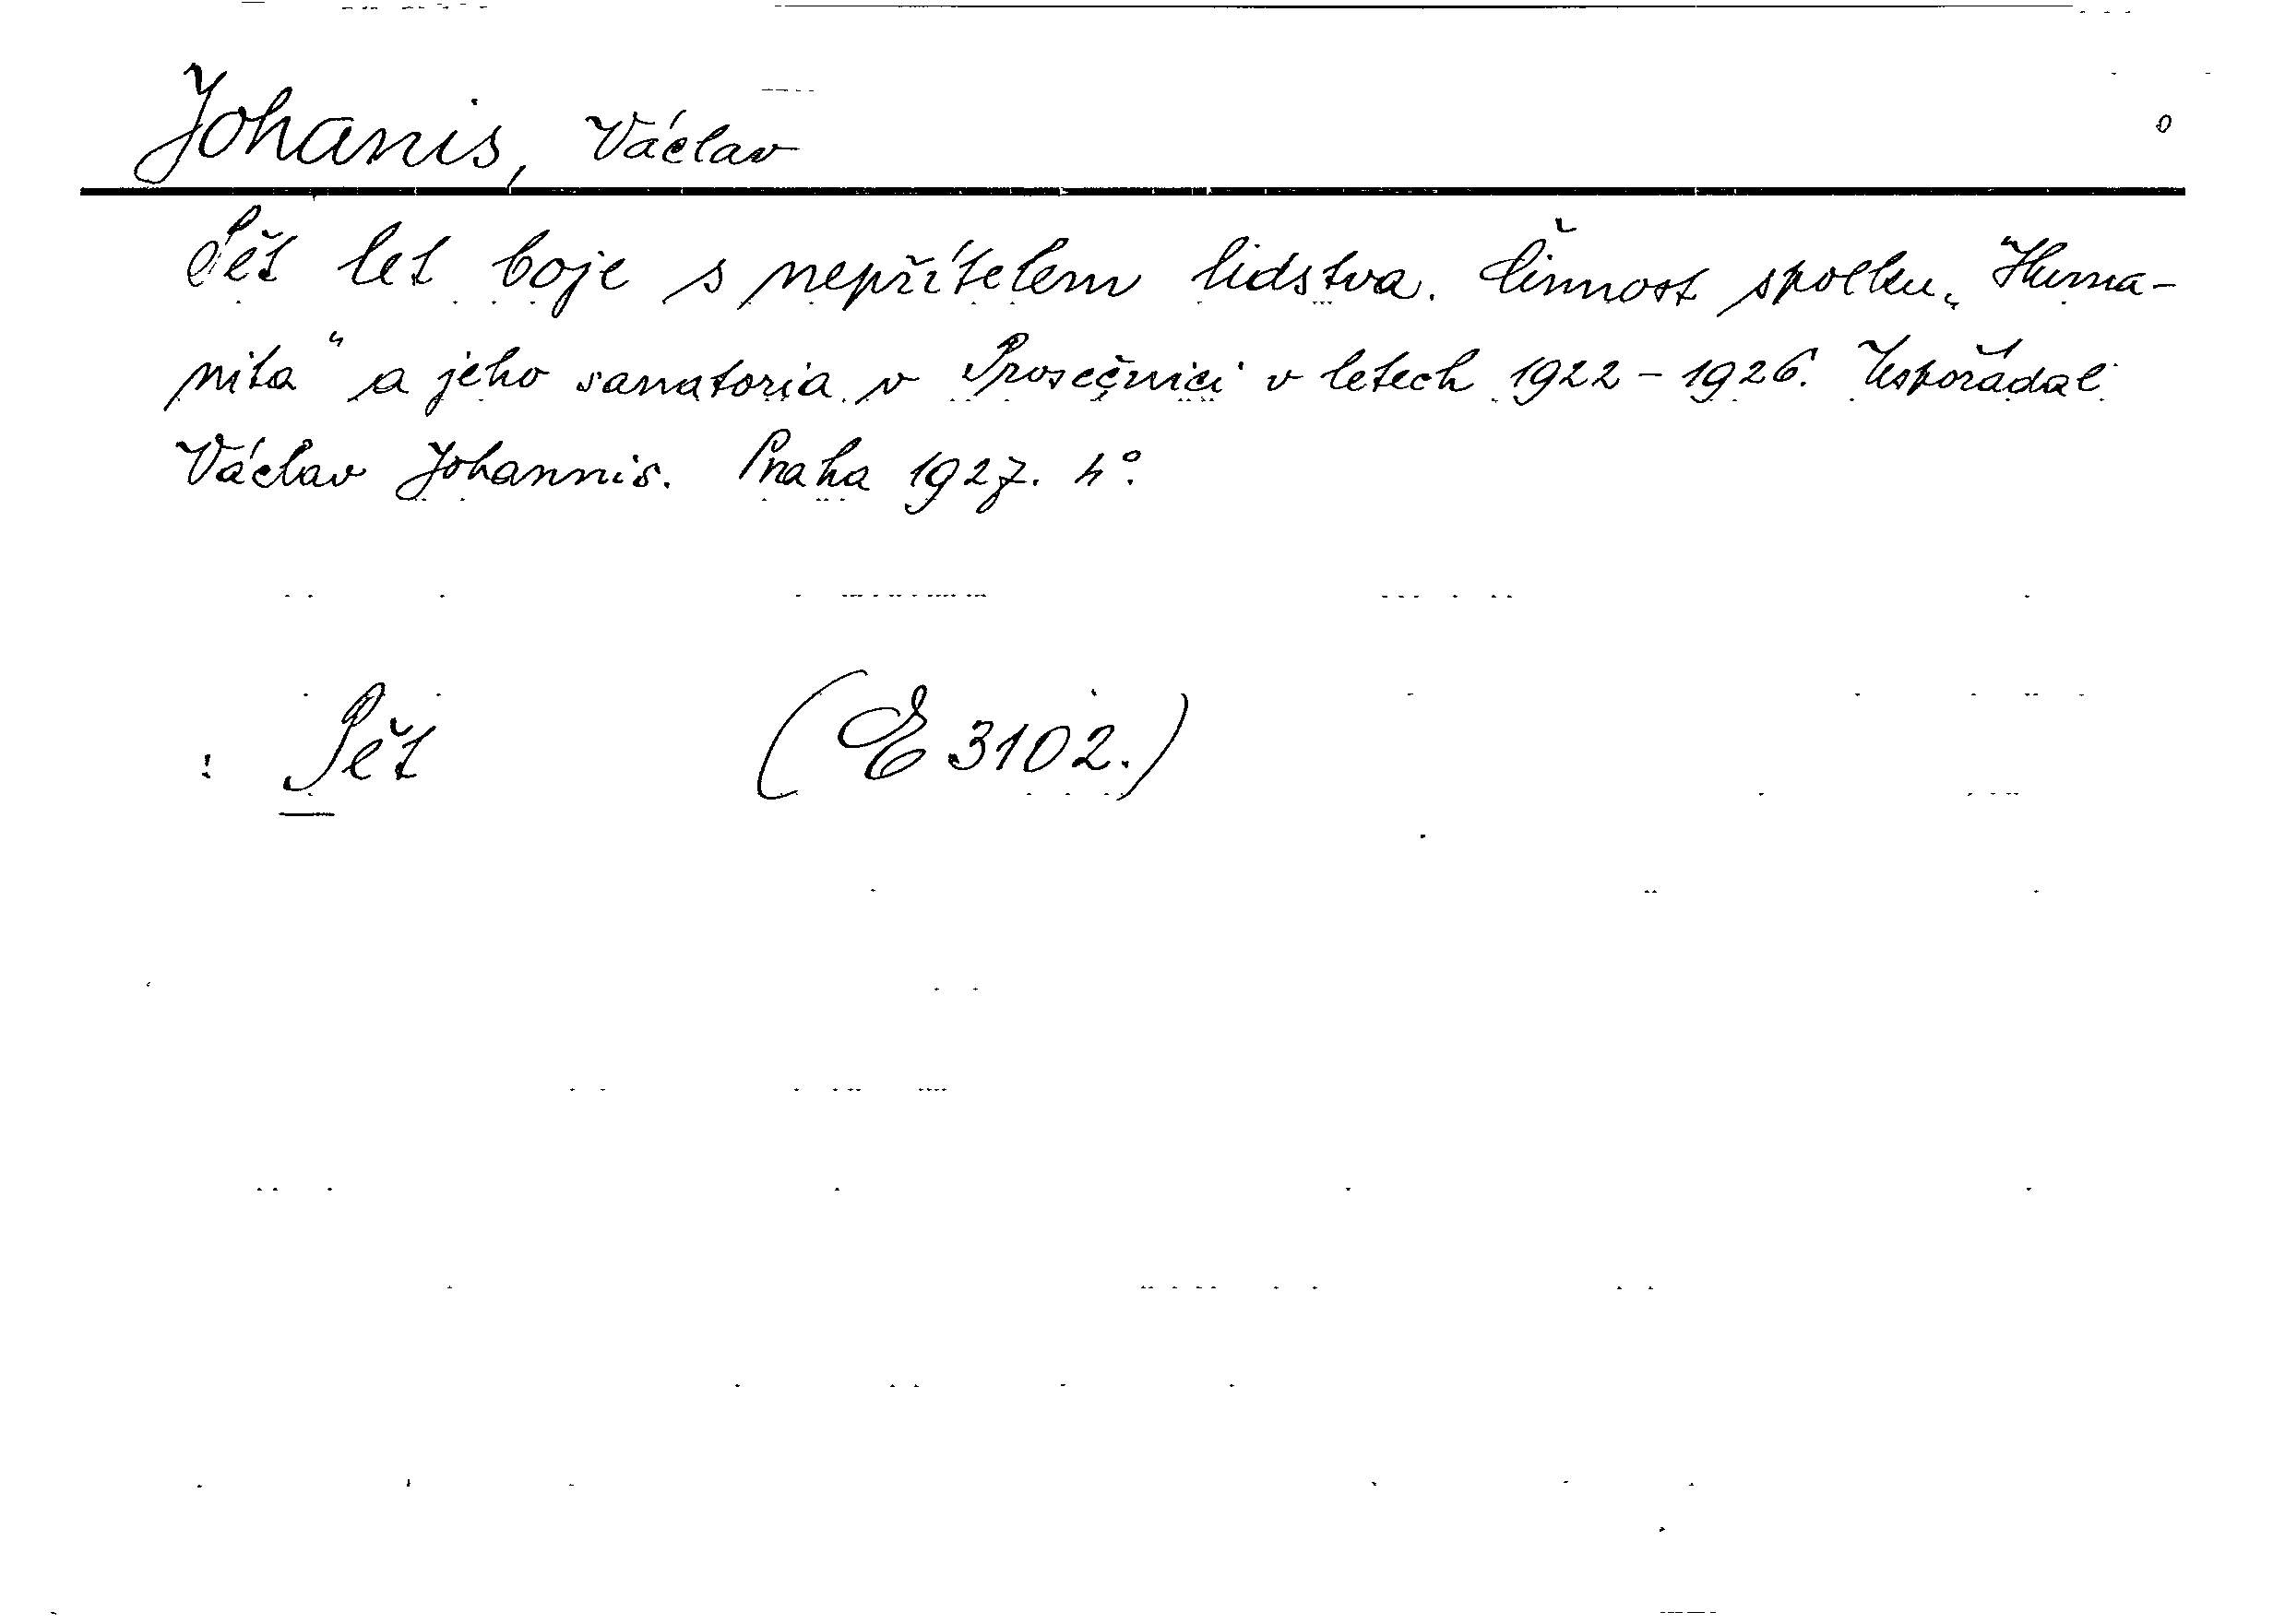 Johanis, Václav
Pět let boje s nepřítelem lidstva. Činnost spolku „Huma-
nita“ a jeho sanatoria v Prosečnici v letech 1922-1926. Uspořádal
Václav Johannis. Praha 1927. 4°.
: Pět (E 3102.)